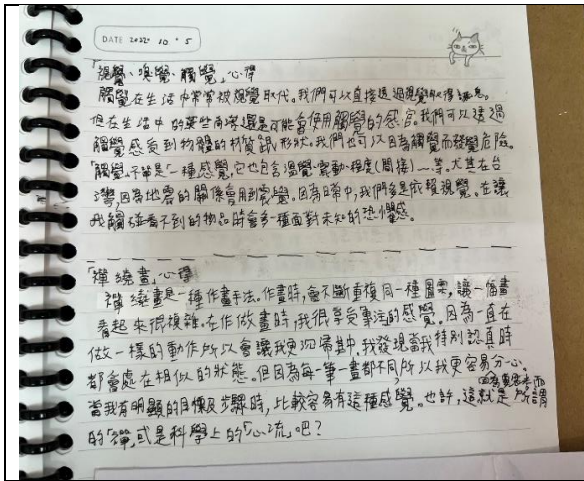 DATE 2022 10 . 5
「視覺、嗅覺、觸覺」心得
觸覺在生活中常常被視覺取代。我們可以直接透過視覺取得訊息。
但在生活中的某些角落還是可能會使用觸覺的感官。我們可以透過
觸覺感受到物體的材質跟形狀。我們也可以因為觸覺而發覺危險。
「觸覺」不單是一種感覺,它也包含溫覺、震動、程度(間接)…等。尤其在台
灣,因為地震的關係會用到震覺。因為日常中,我們多是依賴視覺。在讓
我觸碰看不到的物品時會多一種面對未知的恐懼感。
「禪繞畫」心得
禪繞畫是一種作畫手法。作畫時,會不斷重複同一種圖案,讓一幅畫
看起來很複雜。在作做畫時,我很享受專注的感覺。因為一直在
做一樣的動作所以會讓我更沉浸其中。我發現當我特別認真時
都會處在相似的狀態。但因為每一筆一畫都不同,所以我更容易分心。
當我有明顯的目標及步驟時,比較容易有這種感覺。也許,這就是所謂
的「禪」或是科學上的「心流」吧?